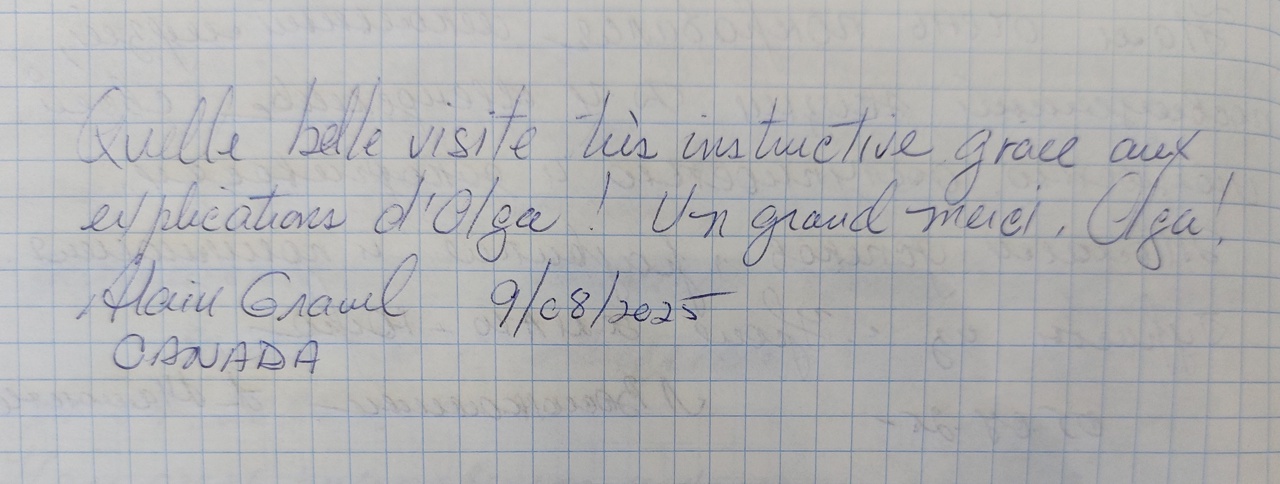 Quelle belle visite très instructive grâce aux
explications d'Olga ! Un grand merci, Olga!
Alain 9/08/2025
CANADA